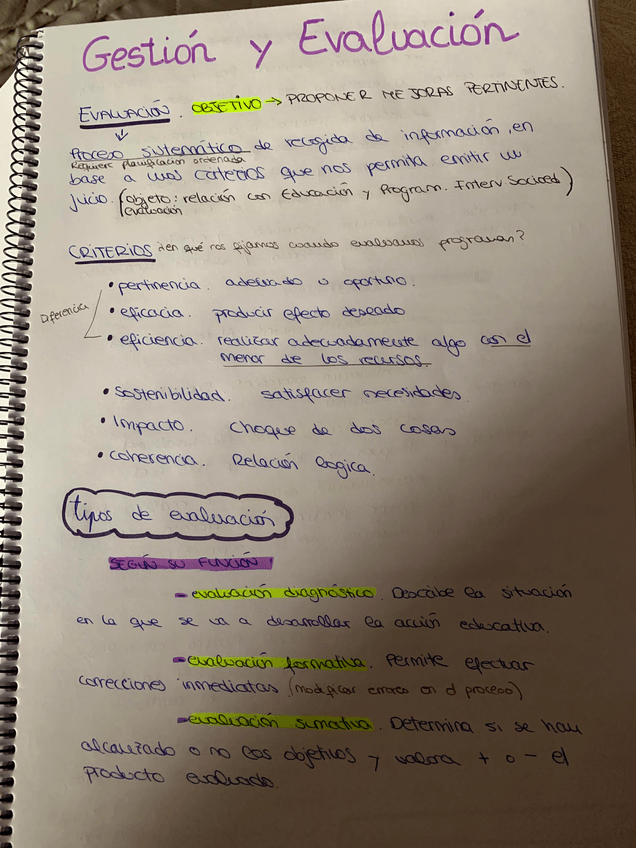 Gestión y Evaluación
EVALUACIÓN. OBJETIVO → PROPONER MEJORAS PERTINENTES.
Proceso sistemático de recogida de información, en
Requiere planificación ordenada
base a unos criterios que nos permita emitir un
juicio. (objeto: relación con Educación y Program. Interv Socioed)
evaluación
CRITERIOS ¿en qué nos fijamos cuando evaluamos programas?
• pertinencia. adecuado u oportuno.
Diferencia
• eficacia. producir efecto deseado
• eficiencia. realizar adecuadamente algo con el
menor de los recursos.
• Sostenibilidad. satisfacer necesidades
• Impacto. Choque de dos cosas
• Coherencia. Relación lógica.
tipos de evaluación
SEGÚN SU FUNCIÓN
- evaluación diagnóstico. Describe la situación
en la que se va a desarrollar la acción educativa.
- evaluación formativa. Permite efectuar
correcciones inmediatas (modificar errores en el proceso)
- evaluación sumativa. Determina si se han
alcanzado o no los objetivos y valora + o - el
producto evaluado.